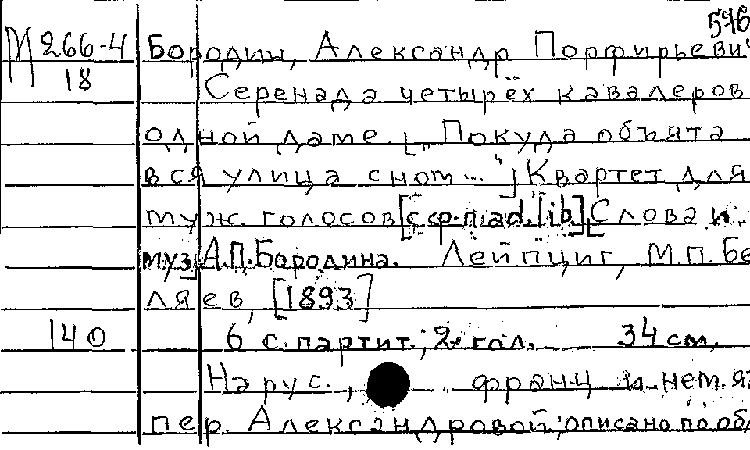 546
М 266-4 Бородин, Александр Порфирьеви
18 Серенада четырёх кавалеров
одной даме. [„Покуда объята
вся улица сном..."] Квартет для
муж. голосов [с ф.-п. ad. lib]. [Слова и
муз.] А.П.Бородина. Лейпциг, М.П.Бе
ляев, [1893]
140 6 с. партит.; 2 гол. 34 см.
На рус., франц и нем. яз
пер. Александровой; описано по об